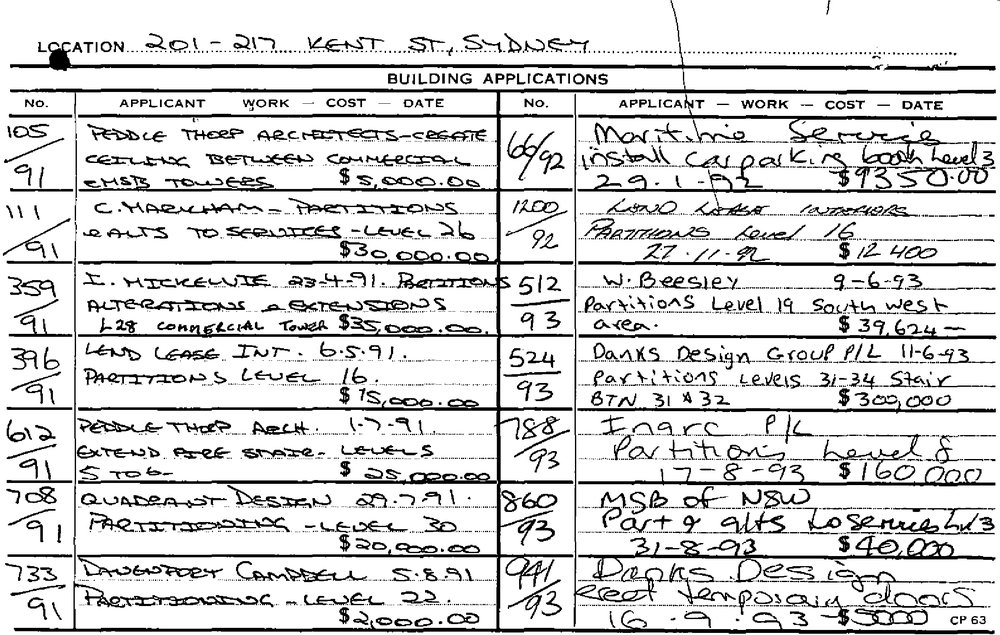 LOCATION 201-217 KENT ST, SYDNEY
BUILDING APPLICATIONS
No. APPLICANT WORK — COST — DATE
105/91 PEDDLE THORP ARCHITECTS-CREATE
CEILING BETWEEN COMMERCIAL
& MSB TOWERS $5,000.00
111/91 C. MARKHAM - PARTITIONS
& ALTS TO SERVICES - LEVEL 26
$30,000.00
359/91 I. MICKELVIE 23-4-91. PARTITIONS
ALTERATIONS & EXTENSIONS
L28 COMMERCIAL TOWER $35,000.00.
396/91 LEND LEASE INT. 6.5.91.
PARTITIONS LEVEL 16.
$15,000.00
612/91 PEDDLE THORP ARCH. 1-7-91.
EXTEND FIRE STAIR - LEVELS
5 TO 6- $25,000.00
708/91 QUADRANT DESIGN 29.7.91.
PARTITIONING - LEVEL 30
$20,000.00
733/91 DAVENPORT CAMPBELL 5.8.91
PARTITIONING - LEVEL 22.
$2,000.00
No. APPLICANT — WORK — COST — DATE
66/92 Maritime Service
install car parking booth Level 3
29.1-92 $9350.00
1200/92 LEND LEASE INTERIORS
PARTITIONS Level 16
27.11.92 $12 400
512/93 W. Beesley 9-6-93
Partitions Level 19 South West
area. $39,624—
524/93 Danks Design Group P/L 11-6-93
Partitions Levels 31-34 Stair
BTN 31 & 32 $300,000
788/93 Ingrc P/L
Partitions Level 8
17-8-93 $160,000
860/93 MSB of NSW
Part & alts to services Lvl 3
31-8-93 $40,000
941/93 Danks Design
erect temporary doors
16.9.93 $5000
CP 63